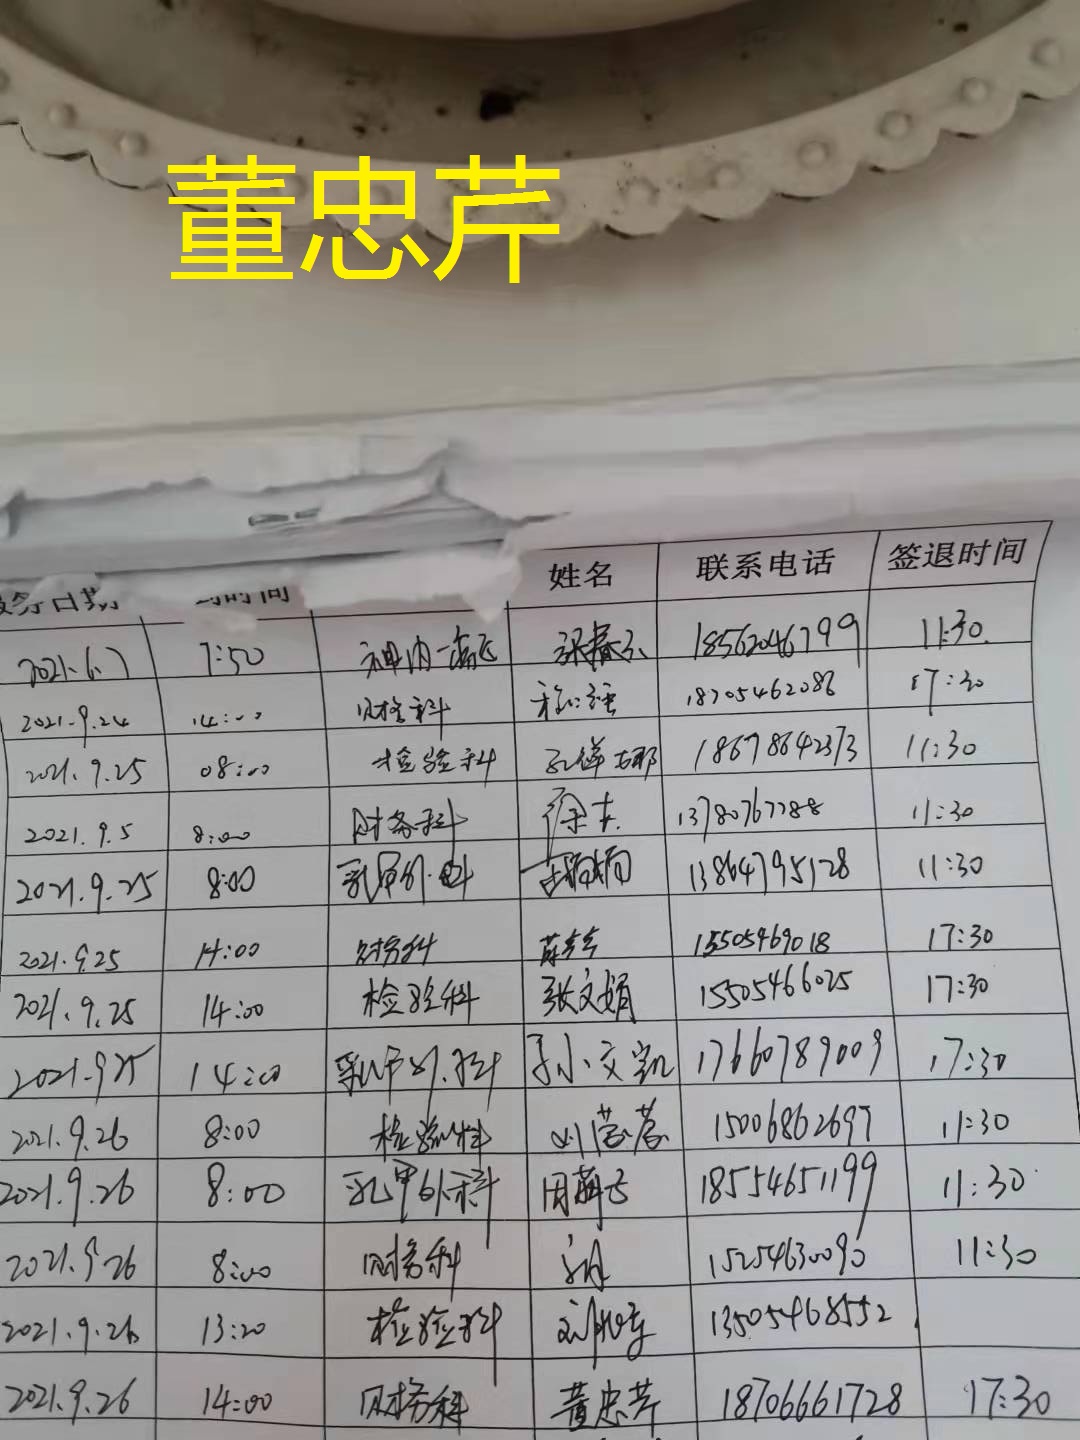 董忠芹
服务日期 时间 姓名 联系电话 签退时间
2021.6.7 7:50 神内一 18562046799 11:30
2021.9.24 14:00 财务科 18705462086 17:30
2021.9.25 08:00 检验科 18678642373 11:30
2021.9.5 8:00 财务科 徐 13780767288 11:30
2021.9.25 8:00 乳甲外科 13864795128 11:30
2021.9.25 14:00 财务科 15505469018 17:30
2021.9.25 14:00 检验科 张文娟 15505466025 17:30
2021.9.25 14:00 乳甲外科 孙文凯 17660789009 17:30
2021.9.26 8:00 检验科 刘 15006862697 11:30
2021.9.26 8:00 乳甲外科 周 18554651199 11:30
2021.9.26 8:00 财务科 15254630090 11:30
2021.9.26 13:20 检验科 刘 13505468552
2021.9.26 14:00 财务科 董忠芹 18706661728 17:30